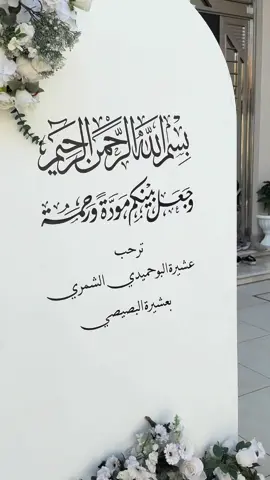 بسم الله الرحمن الرحيم
وجعل بينكم مودة ورحمة
ترحب
عشيرة البوحميدي الشمري
بعشيرة البصيصي